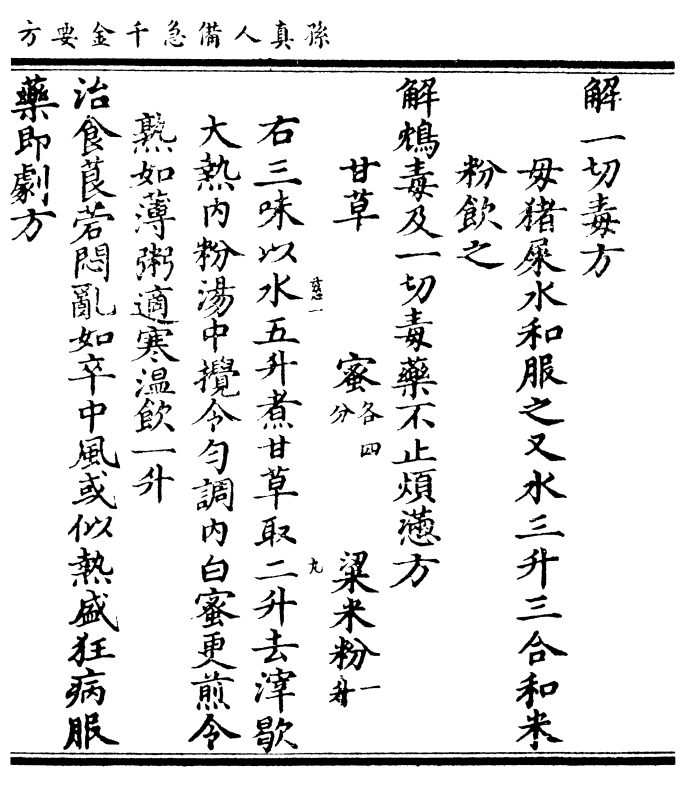 孫真人備急千金要方
解一切毒方
毋猪屎水和服之又水三升三合和米
粉飲之
解鴆毒及一切毒藥不止煩懣方
甘草 蜜各四分 粱米粉一升
右三味以水五升煮甘草取二升去滓歇
大熱内粉湯中攪令勻調内白蜜更煎令
熟如薄粥適寒温飲一升
治食莨菪悶亂如卒中風或似熱盛狂病服
藥即劇方